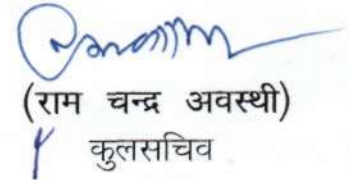 (राम चन्द्र अवस्थी)
कुलसचिव